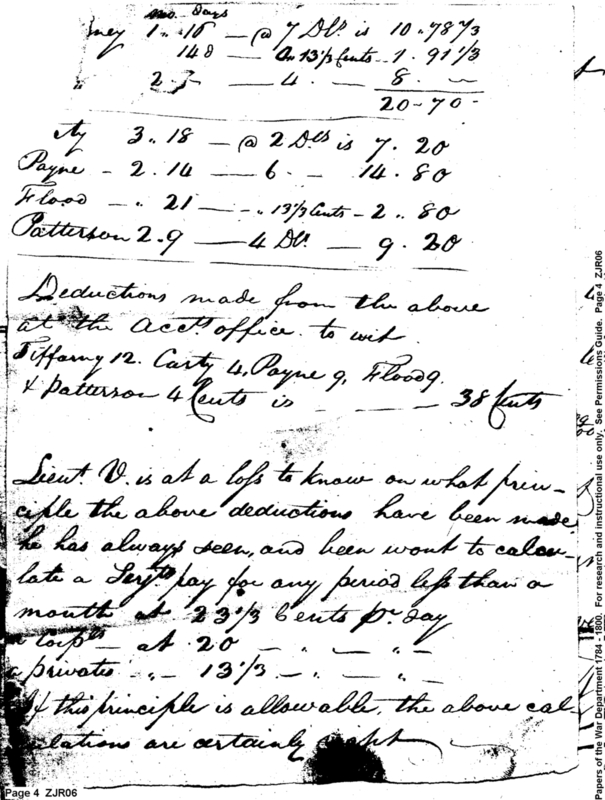 mo. days
ney 1 .. 16 — @ 7 Dls. is 10.78 2/3
14 8 — On 13 1/3 Cents - 1.91 1/3
" 2 — 4 . — 8 . ~
20-70-
ty 3.18 — @ 2 Dls is 7.20
Payne - 2.14 — 6 . - 14.80
Flood - " 21 — - " 13 1/3 Cents - 2 .. 80
Patterson 2.9 — 4 Dls. — 9.20
Deductions made from the above
at the Accts. office. to wit
Tiffany 12. Carty 4, Payne 9, Flood 9.
& Patterson 4 Cents is — — — 38 Cents
Lieut. V. is at a loss to know on what prin-
ciple the above deductions have been made,
he has always seen, and been wont to calcu-
late a Serjts. pay for any period less than a
month at 23 1/3 Cents pr. day
a corpls — at 20 — " — " —
a privates " - 13 1/3 — " — " —
If this principle is allowable, the above cal-
culations are certainly
Page 4 ZJR06
Papers of the War Department 1784 - 1800. For research and instructional use only. See Permissions Guide. Page 4 ZJR06